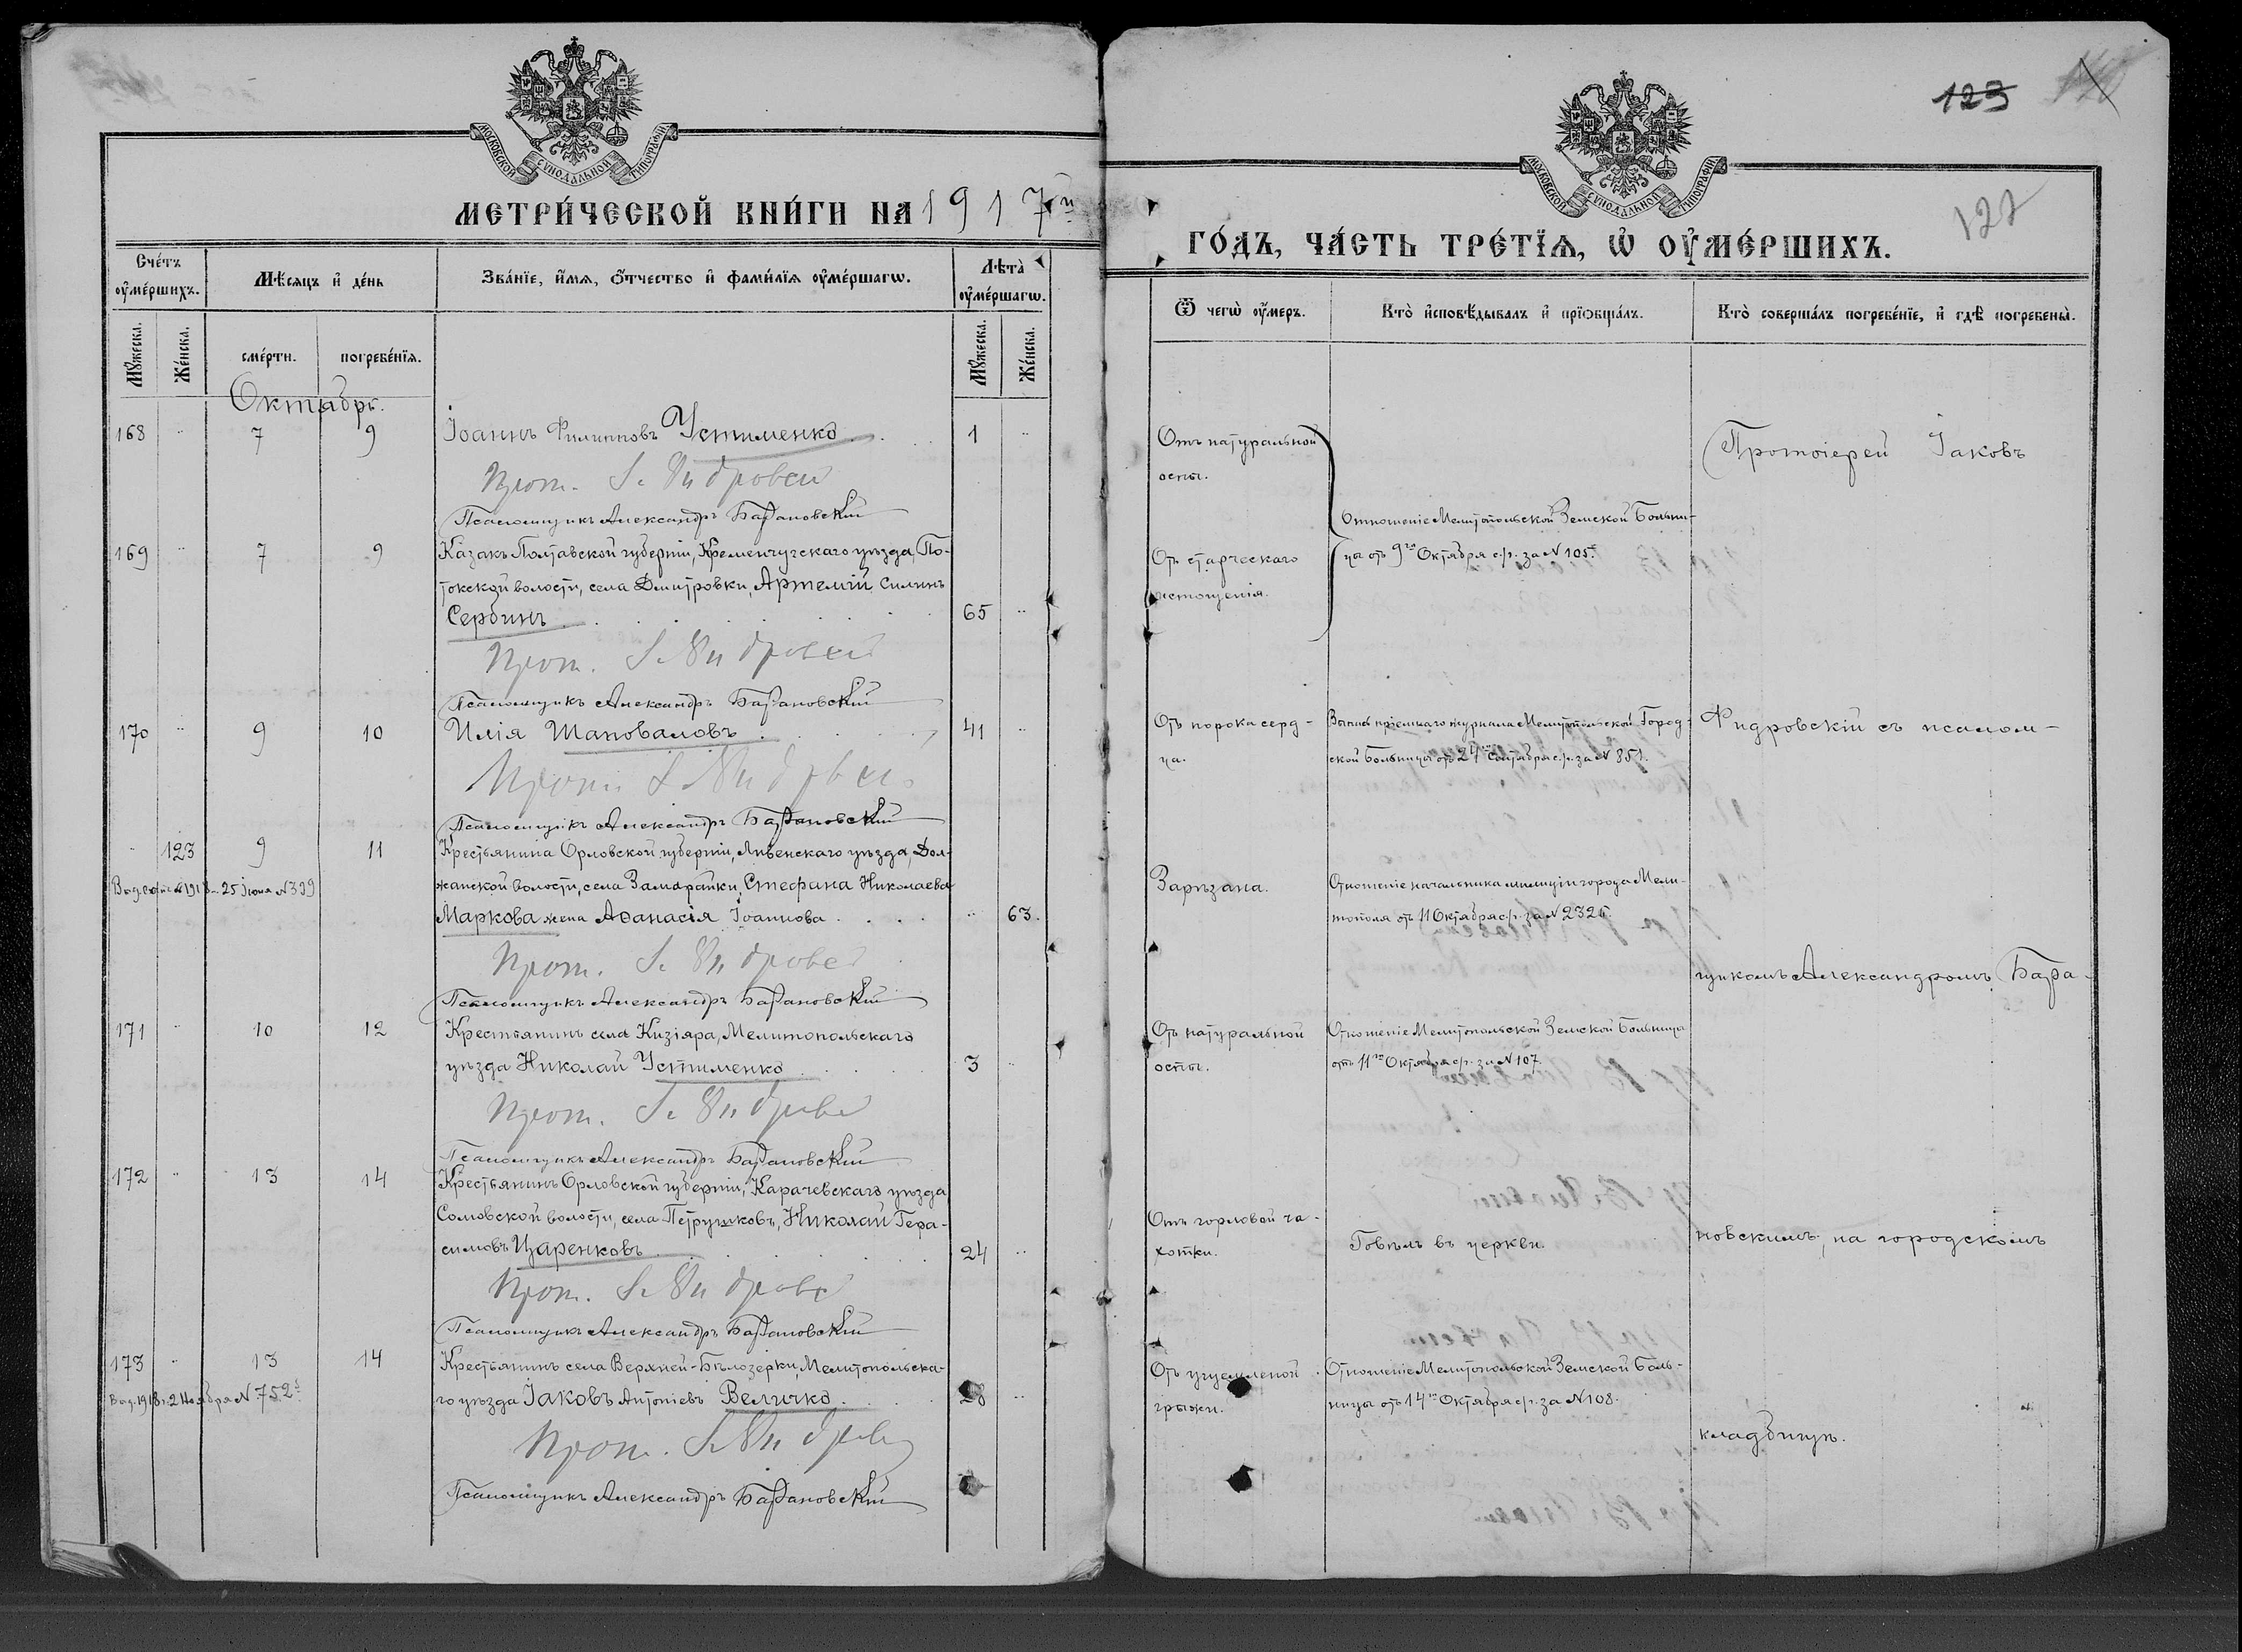 МОСКОВСКОЙ СУНОДАЛЬНОЙ ТИПОГРАФІИ
МЕТРИ́ЧЕСКОЙ КНИ́ГИ НА 1917й
Сче́тъ оу҆ме́ршихъ.
Мѣ́сяцъ и҆ де́нь
Зва́нїе, и҆́мя, ѻ҆́тчество и҆ фами́лїя оу҆ме́ршагѡ.
Лѣта̀ оу҆ме́ршагѡ.
Мꙋ́жеска. Же́нска. сме́рти. погребе́нїя. Мꙋ́жеска. Же́нска.
Октябрь.
168 " 7 9 Іоаннъ Филипповъ Устименко 1 "
Прот. І. Фидровскій
Псаломщикъ Александръ Барановскій
169 " 7 9 Казакъ Полтавской губерніи, Кременчугскаго уѣзда, По-
токской волости, села Дмитровки, Артемій Силинъ
Сербинъ 65 "
Прот. І. Фидровскій
Псаломщикъ Александръ Барановскій
170 " 9 10 Илія Шаповаловъ 41 "
Прот. І. Фидровскій
Псаломщикъ Александръ Барановскій
" 123 9 11 Крестьянина Орловской губерніи, Ливенскаго уѣзда, Дол-
Выд. 1918 г. 25 Іюня №399
жанской волости, села Замарайки, Стефана Николаева
Маркова жена Аѳанасія Іоаннова " 63.
Прот. І. Фидровскій
Псаломщикъ Александръ Барановскій
171 " 10 12 Крестьянинъ села Кизіяра, Мелитопольскаго
уѣзда Николай Устименко 3 "
Прот. І. Фидровскій
Псаломщикъ Александръ Барановскій
172 " 13 14 Крестьянинъ Орловской губерніи, Карачевскаго уѣзда
Сомовской волости, села Петрушковъ, Николай Гера-
симовъ Царенковъ 24 "
Прот. І. Фидровскій
Псаломщикъ Александръ Барановскій
173 " 13 14 Крестьянинъ села Верхней-Бѣлозерки, Мелитопольска-
Выд. 1918 г. 2 Ноября №752
го уѣзда Іаковъ Антоніевъ Величко 28 "
Прот. І. Фидровскій
Псаломщикъ Александръ Барановскій
123
МОСКОВСКОЙ СУНОДАЛЬНОЙ ТИПОГРАФІИ
122
ГО́ДЪ, ЧА́СТЬ ТРЕ́ТЇЯ, Ѡ҆ ОУ҆МЕ́РШИХЪ.
Ѿ чегѡ̀ оу҆́меръ.
Кто̀ и҆сповѣ́дывалъ и҆ прїѡбща́лъ.
Кто̀ соверша́лъ погребе́нїе, и҆ гдѣ̀ погребены̀.
Отъ натуральной
оспы.
Протоіерей Іаковъ
Отношеніе Мелитопольской Земской Больни-
цы отъ 9го Октября с/г. за №105.
Отъ старческаго
истощенія.
Отъ порока серд-
ца.
Выпись пріемнаго журнала Мелитопольской Город-
ской Больницы отъ 24го Сентября с/г. за №851.
Фидровскій съ псалом-
Зарѣзана.
Отношеніе начальника милиціи города Мели-
тополя отъ 11 Октября с/г. за №2325.
щикомъ Александромъ Бара-
Отъ натуральной
оспы.
Отношеніе Мелитопольской Земской Больницы
отъ 11го Октября с/г. за №107.
Отъ горловой ча-
хотки.
Говѣлъ въ церкви.
новскимъ, на городскомъ
Отъ ущемленой
грыжи.
Отношеніе Мелитопольской Земской Боль-
ницы отъ 14го Октября с/г. за №108.
кладбищѣ.